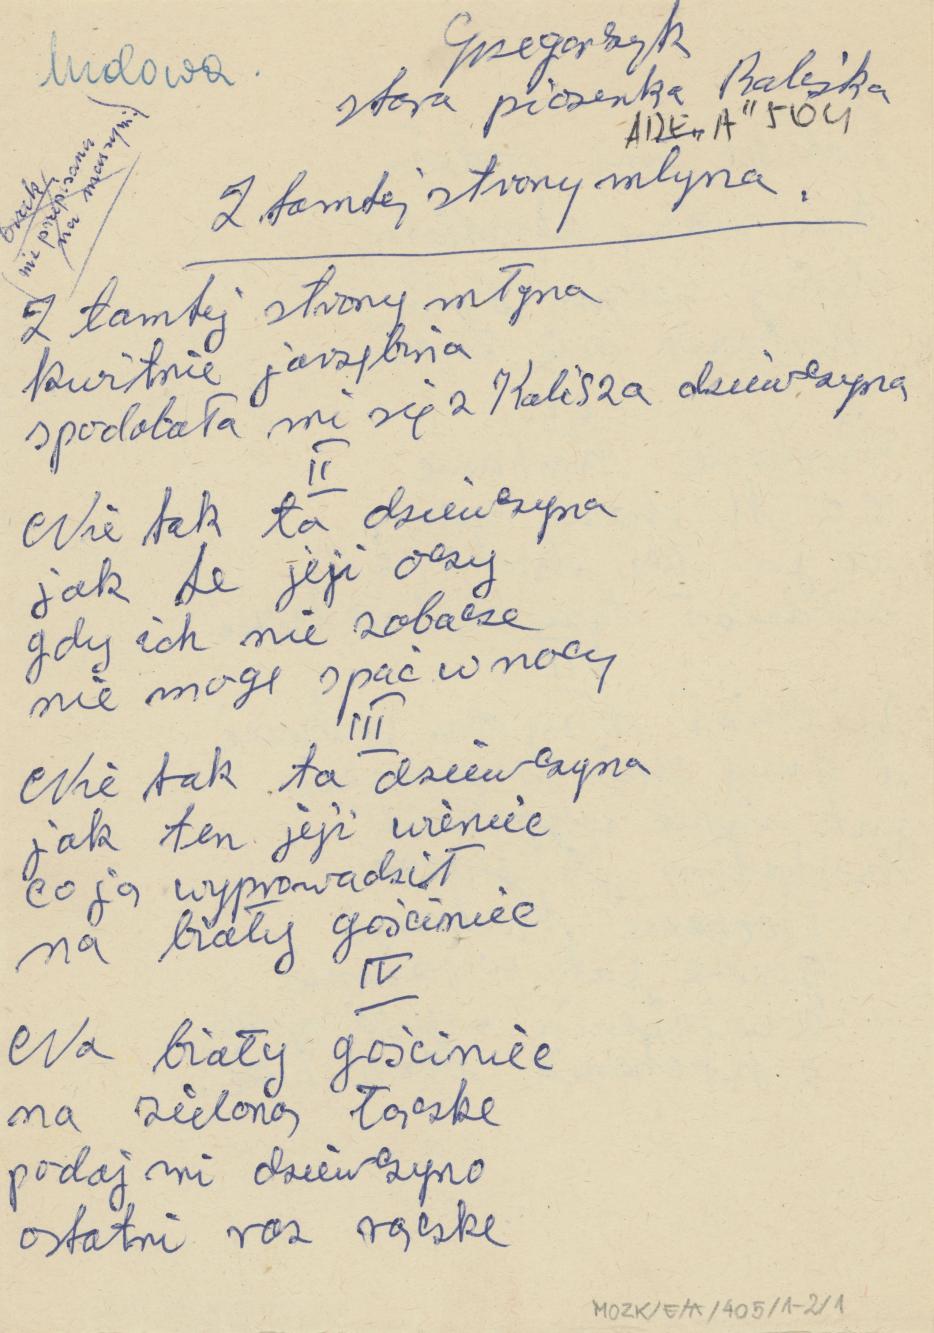 ludowa.
Grzegorzyk
stara piosenka Kaliska
ADE „A" 504
nie przepisana
na maszynie
Z tamtej strony młyna.
Z tamtej strony młyna
kwitnie jarzębina
spodobała mi się z KaliSza dziewczyna
II
Nie tak ta dziewczyna
jak te jeji oczy
gdy ich nie zobacze
nie moge spać w nocy
III
Nie tak ta dziewczyna
jak ten jeji wieniec
co ją wyprowadził
na biały gościniec
IV
Na biały gościniec
na zieloną łączke
podaj mi dziewczyno
ostatni raz rączke
MOZK/E/A/405/1-2/1